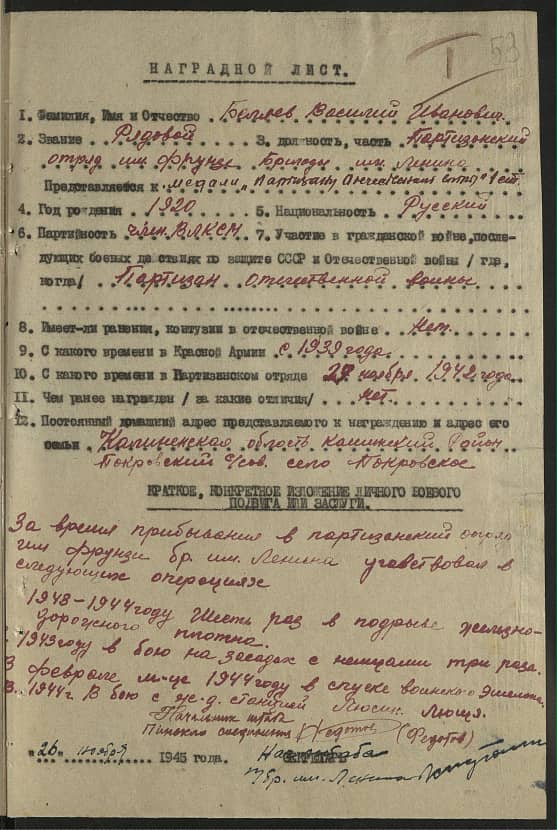 I 53
НАГРАДНОЙ ЛИСТ.
1. Фамилия, Имя и Отчество Беляев Василий Иванович.
2. Звание Рядовой 3. должность, часть Партизанский
отряд им. Фрунзе Бригады им. Ленина
Представляется к медали "Партизану Отечественной войны" I ст.
4. Год рождения 1920 5. Национальность Русский
6. Партийность член ВЛКСМ 7. Участие в гражданской войне, после-
дующих боевых действиях по защите СССР и Отечественной войны / где,
когда/ Партизан отечественной войны
8. Имеет-ли ранения, контузии в отечественной войне Нет.
9. С какого времени в Красной Армии с 1939 года.
10. С какого времени в Партизанском отряде 27 ноября 1942 года
11. Чем ранее награжден / за какие отличия/ нет.
12. Постоянный домашний адрес представляемого к награждению и адрес его
семьи Калиненская область Кашинский Район
Покровский с/сов. село Покровское
КРАТКОЕ, КОНКРЕТНОЕ ИЗЛОЖЕНИЕ ЛИЧНОГО БОЕВОГО
ПОДВИГА ИЛИ ЗАСЛУГИ.
За время прибывания в партизанский отряд
им Фрунзи бр. им. Ленина учавствовал в
следующих операциях
1943-1944 году Шесть раз в подрыве железно-
дорожного плотна.
1943 году в бою на засадах с немцами три раза.
В феврале м-це 1944 году в спуске воинского эшелона
В 1944 г. В бою с ж.д. станцией Люсин. Люща.
Начальник штаба
Пинского соединения (Федотов)
"26" ноября 1945 года. Нач. штаба
бр. им. Ленина